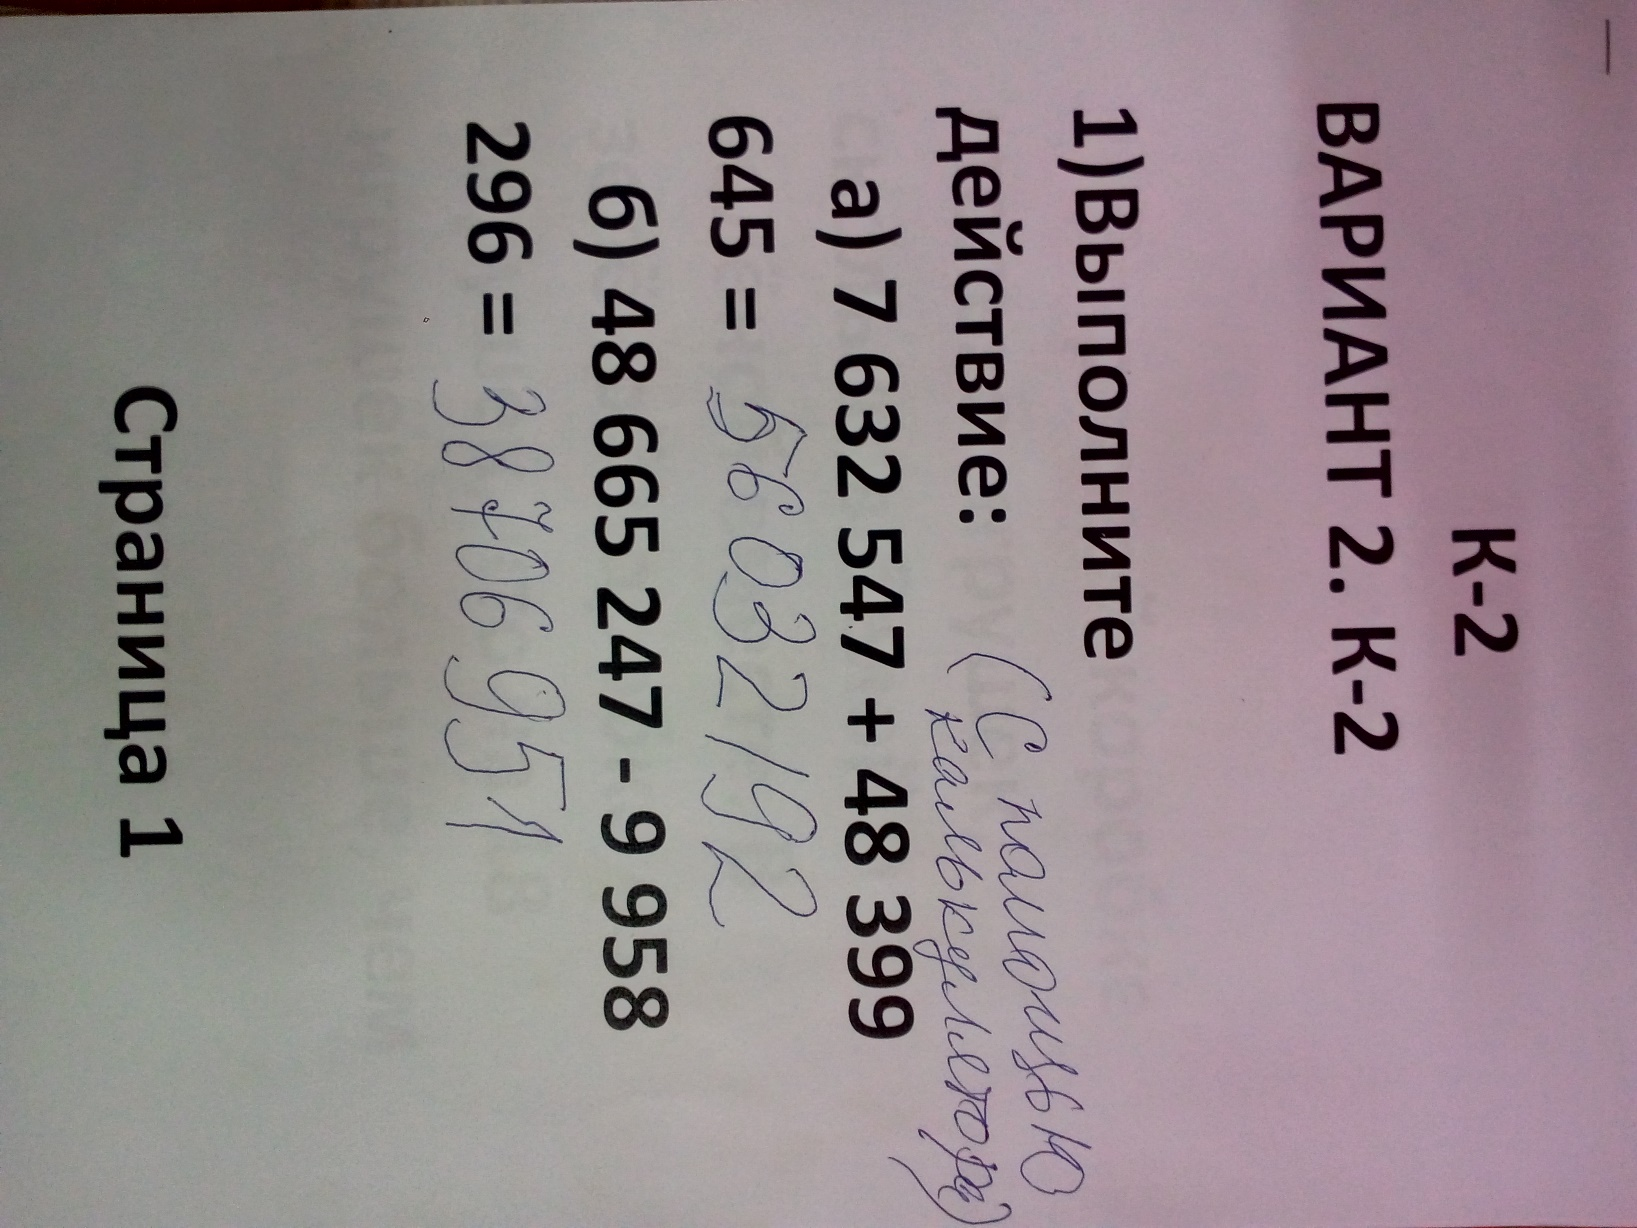 К-2
ВАРИАНТ 2. К-2
1)Выполните
действие: (С помощью
калькулятора)
а) 7 632 547 + 48 399
645 = 56032192
б) 48 665 247 - 9 958
296 = 38706951
Страница 1